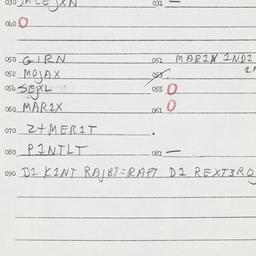 030 JACEJXN 031 —
040 0
050 GIRN 051 MAR1X 1ND1
052 M0JAX 053
054 SEJXL 055 0
060 MAR1X 061 0
070 2+MER1T .
080 P1NTLT 081 —
090 D1 K1NT RAJBT=RAPT D1 REXT3RO